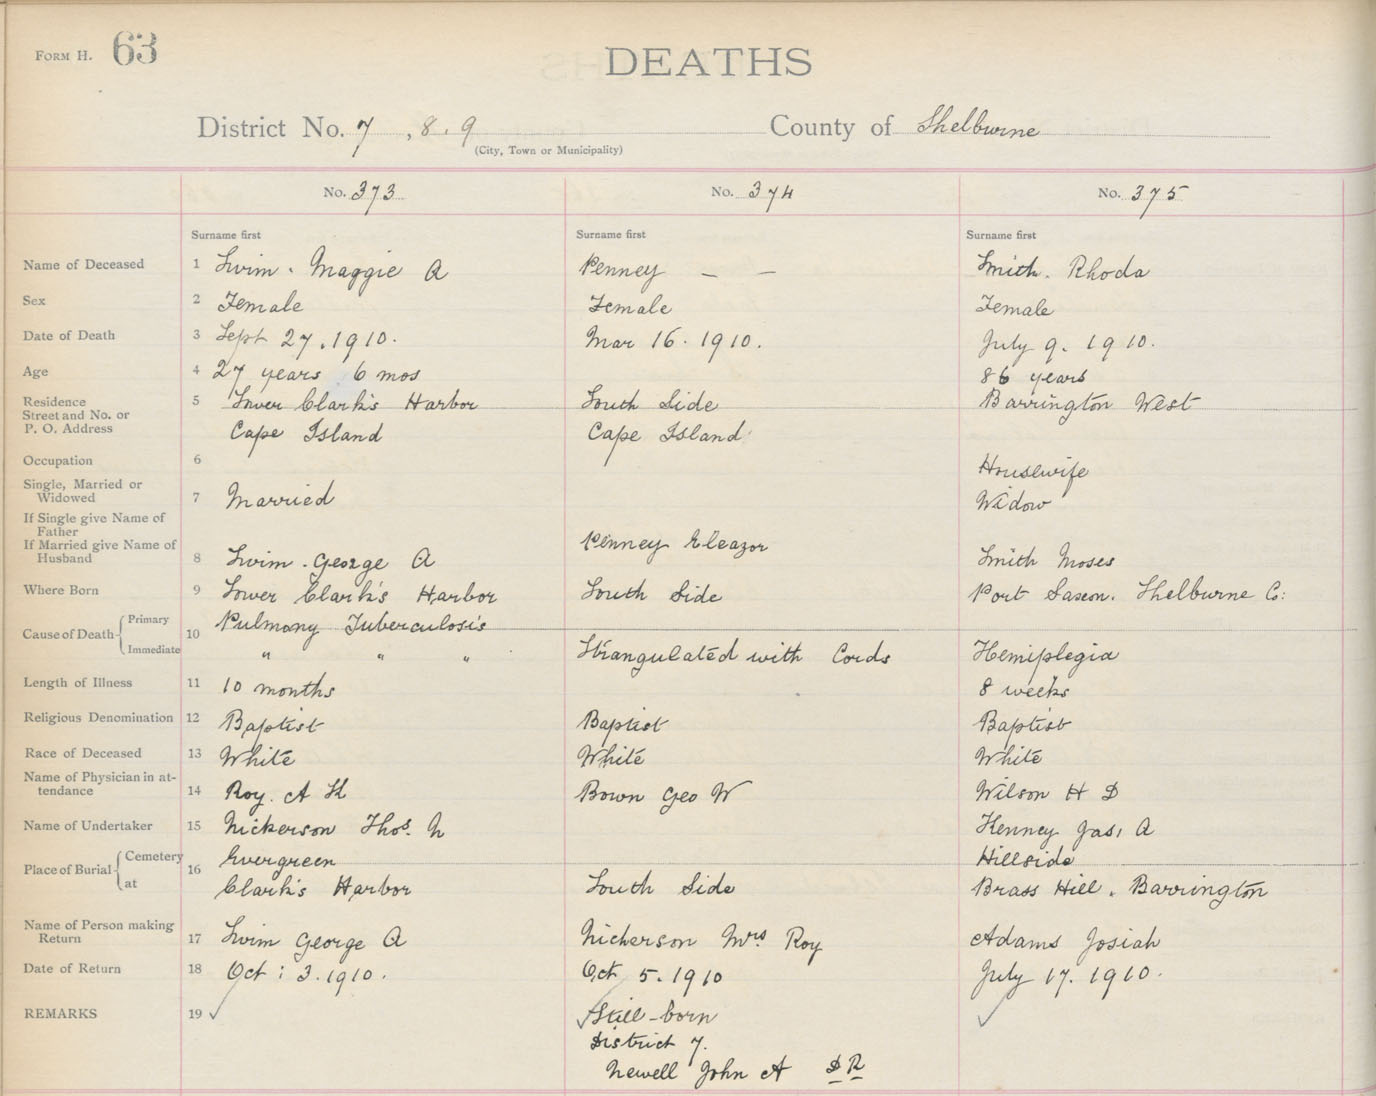 FORM H. 63
DEATHS
District No. 7 , 8 . 9 County of Shelburne
(City, Town or Municipality)
No. 373 No. 374 No. 375
Surname first Surname first Surname first
Name of Deceased 1 Swim . Maggie A Penney — — Smith . Rhoda
Sex 2 Female Female Female
Date of Death 3 Sept 27 . 1910 . Mar 16 . 1910 . July 9 . 1910 .
Age 4 27 years 6 mos 86 years
Residence 5 Lower Clark's Harbor South Side Barrington West
Street and No. or
P. O. Address Cape Island Cape Island
Occupation 6 Housewife
Single, Married or
Widowed 7 Married Widow
If Single give Name of
Father
If Married give Name of Penney Eleazor
Husband 8 Swim . George A Smith Moses
Where Born 9 Lower Clark's Harbor South Side Port Saxon . Shelburne Co:
Primary Pulmony Tuberculosis
Cause of Death 10
Immediate " " " Strangulated with Cords Hemiplegia
Length of Illness 11 10 months 8 weeks
Religious Denomination 12 Baptist Baptist Baptist
Race of Deceased 13 White White White
Name of Physician in at-
tendance 14 Roy . A K Bown Geo W Wilson H D
Name of Undertaker 15 Nickerson Thos. N Kenney Jas, A
Cemetery Evergreen Hillside
Place of Burial 16
at Clark's Harbor South Side Brass Hill . Barrington
Name of Person making
Return 17 Swim George A Nickerson Mrs Roy Adams Josiah
Date of Return 18 Oct : 3 . 1910 . Oct 5 . 1910 July 17 . 1910 .
REMARKS 19 ✓ ✓ Still-born ✓
District 7.
Newell John A D R